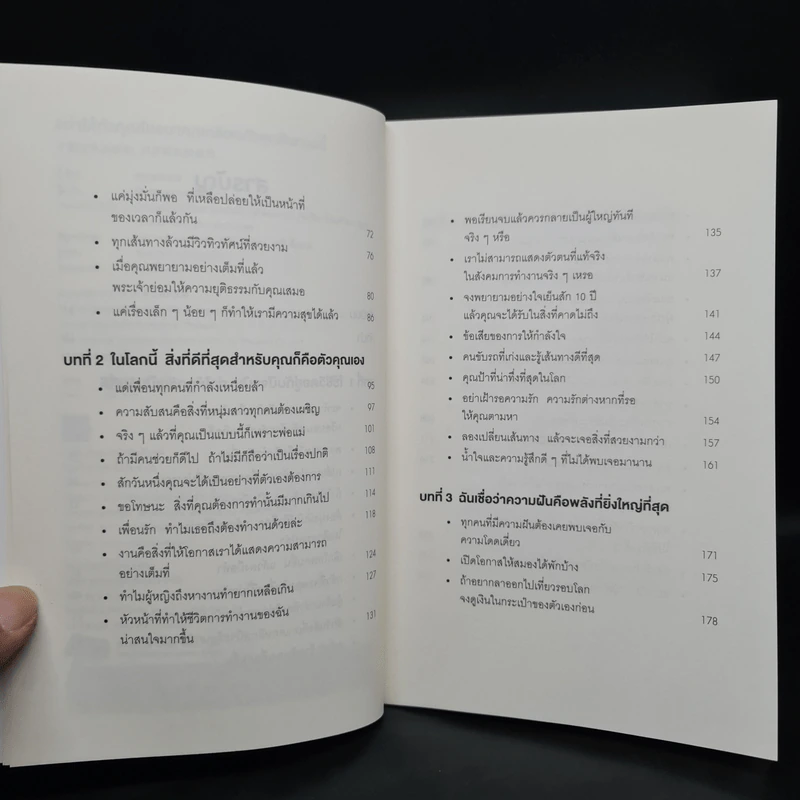 • แค่มุ่งมั่นก็พอ ที่เหลือปล่อยให้เป็นหน้าที่
ของเวลาก็แล้วกัน 72
• ทุกเส้นทางล้วนมีวิวทิวทัศน์ที่สวยงาม 76
• เมื่อคุณพยายามอย่างเต็มที่แล้ว
พระเจ้าย่อมให้ความยุติธรรมกับคุณเสมอ 80
• แค่เรื่องเล็ก ๆ น้อย ๆ ก็ทำให้เรามีความสุขได้แล้ว 86
บทที่ 2 ในโลกนี้ สิ่งที่ดีที่สุดสำหรับคุณก็คือตัวคุณเอง
• แด่เพื่อนทุกคนที่กำลังเหนื่อยล้า 95
• ความสับสนคือสิ่งที่หนุ่มสาวทุกคนต้องเผชิญ 97
• จริง ๆ แล้วที่คุณเป็นแบบนี้ก็เพราะพ่อแม่ 101
• ถ้ามีคนช่วยก็ดีไป ถ้าไม่มีก็ถือว่าเป็นเรื่องปกติ 108
• สักวันหนึ่งคุณจะได้เป็นอย่างที่ตัวเองต้องการ 111
• ขอโทษนะ สิ่งที่คุณต้องการทำนั้นมีมากเกินไป 114
• เพื่อนรัก ทำไมเธอถึงต้องทำงานด้วยล่ะ 118
• งานคือสิ่งที่ให้โอกาสเราได้แสดงความสามารถ
อย่างเต็มที่ 124
• ทำไมผู้หญิงถึงหางานทำยากเหลือเกิน 127
• หัวหน้าที่ทำให้ชีวิตการทำงานของฉัน
น่าสนใจมากขึ้น 131
• พอเรียนจบแล้วควรกลายเป็นผู้ใหญ่ทันที
จริง ๆ หรือ 135
• เราไม่สามารถแสดงตัวตนที่แท้จริง
ในสังคมการทำงานจริง ๆ เหรอ 137
• จงพยายามอย่างใจเย็นสัก 10 ปี
แล้วคุณจะได้รับในสิ่งที่คาดไม่ถึง 141
• ข้อเสียของการให้กำลังใจ 144
• คนขับรถที่เก่งและรู้เส้นทางดีที่สุด 147
• คุณป้าที่น่าทึ่งที่สุดในโลก 150
• อย่าเฝ้ารอความรัก ความรักต่างหากที่รอ
ให้คุณตามหา 154
• ลองเปลี่ยนเส้นทาง แล้วจะเจอสิ่งที่สวยงามกว่า 157
• น้ำใจและความรู้สึกดี ๆ ที่ไม่ได้พบเจอมานาน 161
บทที่ 3 ฉันเชื่อว่าความฝันคือพลังที่ยิ่งใหญ่ที่สุด
• ทุกคนที่มีความฝันต้องเคยพบเจอกับ
ความโดดเดี่ยว 171
• เปิดโอกาสให้สมองได้พักบ้าง 175
• ถ้าอยากลาออกไปเที่ยวรอบโลก
จงดูเงินในกระเป๋าของตัวเองก่อน 178